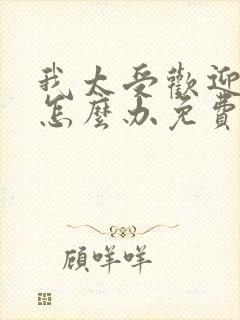 我太受歡迎
怎麼办免費
顧咩咩